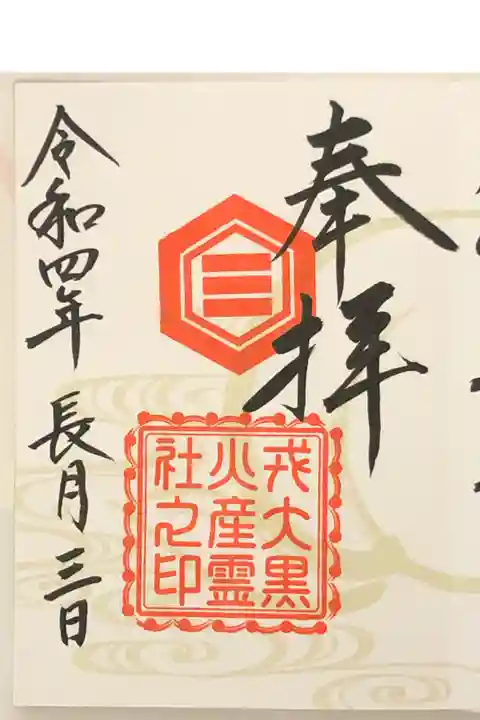 奉拝
三
戎大黒
火産霊
社之印
令和四年 長月三日